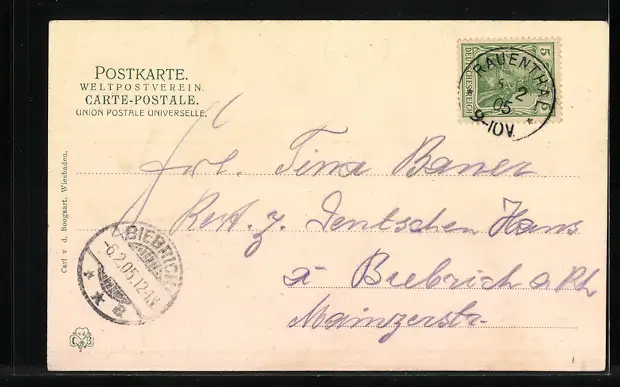 POSTKARTE.
WELTPOSTVEREIN.
CARTE-POSTALE.
UNION POSTALE UNIVERSELLE.
5
DEUTSCHES REICH
RAUENTHAL
2
05
9-10V.
Frl. Tina Bauer
Rest. z. Deutschen Haus
à Biebrich a Rh
Mainzerstr.
BIEBRICH
-6.2.05.12-1N
Carl v. d. Boogaart, Wiesbaden.